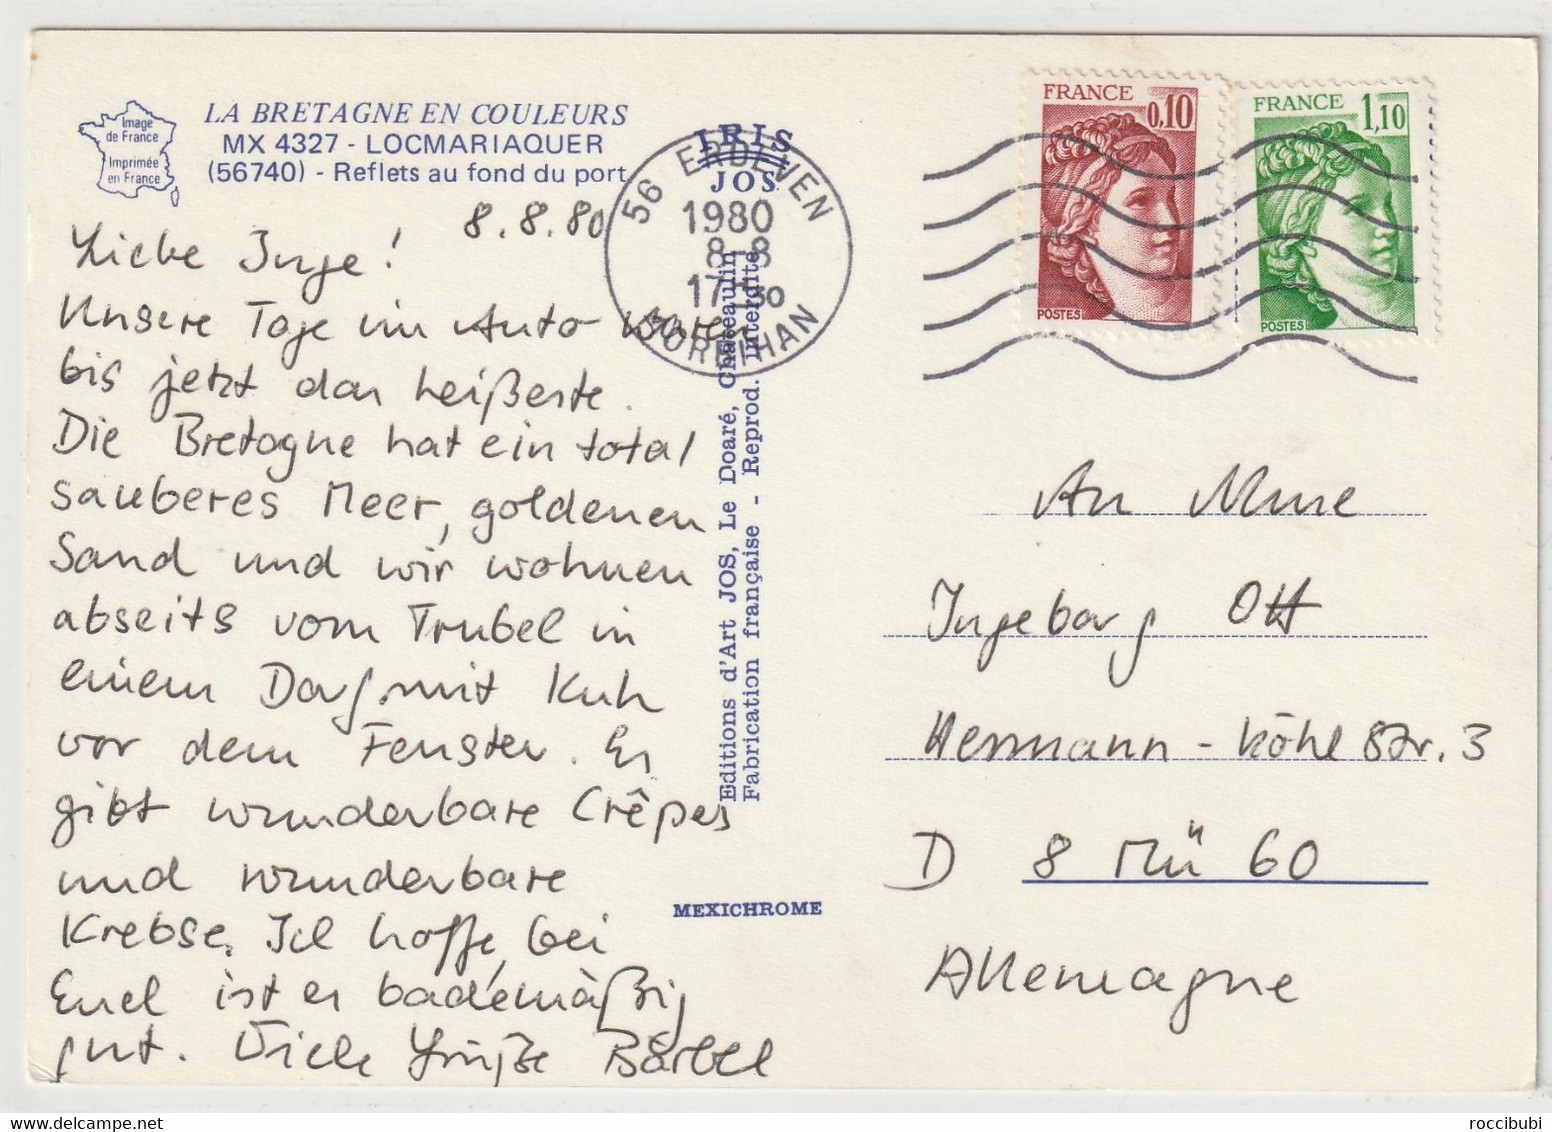 Image
de France
Imprimée
en France
LA BRETAGNE EN COULEURS
MX 4327 - LOCMARIAQUER
(56740) - Reflets au fond du port
8.8.80
Liebe Inge!
Unsere Tage im Auto waren
bis jetzt das heißeste.
Die Bretagne hat ein total
sauberes Meer, goldenen
Sand und wir wohnen
abseits vom Trubel in
einem Dorf mit Kuh
vor dem Fenster. Es
gibt wunderbare Crêpes
und wunderbare
Krebse. Ich hoffe, bei
Euch ist es bademäßig
gut. Viele Grüße Bärbel
IRIS
JOS
56 ERDEVEN
1980
8-8
17H30
MORBIHAN
Editions d'Art JOS, Le Doaré, Chateaulin
Fabrication française - Reprod. interdite
MEXICHROME
FRANCE
0,10
POSTES
FRANCE
1,10
POSTES
An Mme
Ingeborg Ott
Hermann-Köhl Str. 3
D 8 Mü 60
Allemagne
roccibubi